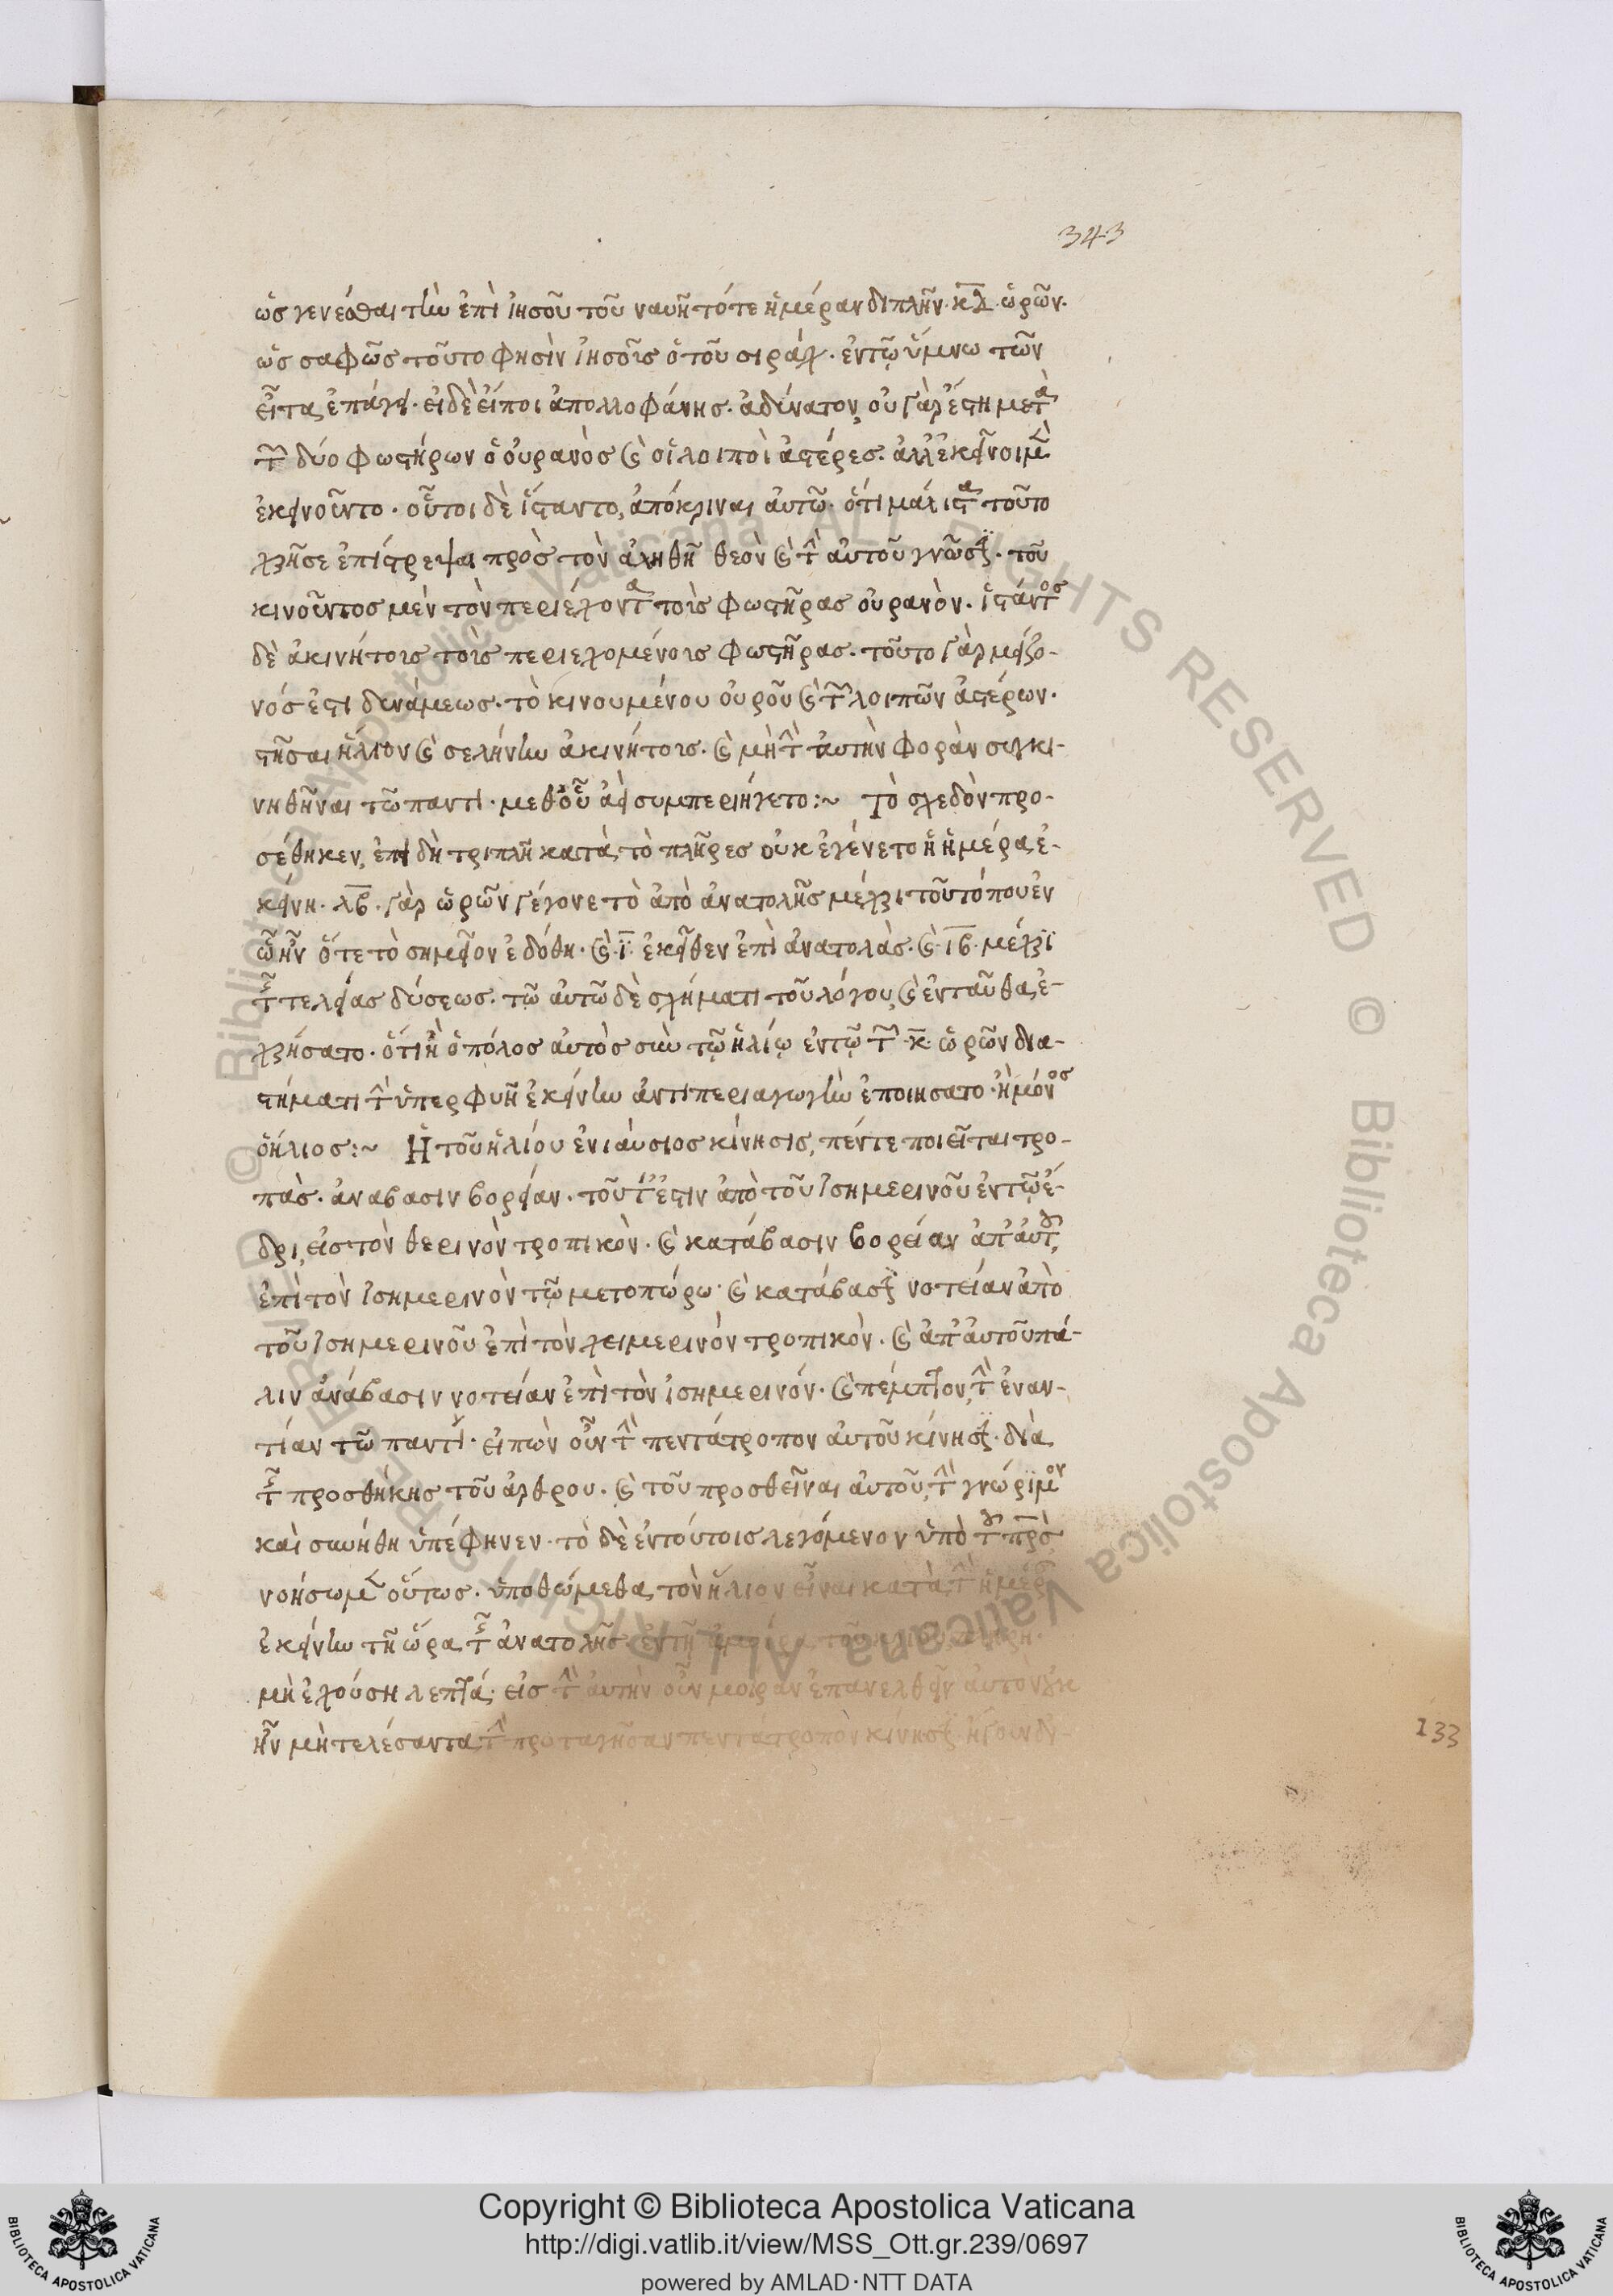 343
ὡς γενέσθαι τὴν ἐπὶ ἰησοῦ τοῦ ναυῆ τότε ἡμέραν διπλῆν. κδ. ὡρῶν.
ὡς σαφῶς τοῦτο φησὶν ἰησοῦς ὁ τοῦ σιράχ. ἐντῶ ὕμνω τῶν
εἶτα ἐπάγει. εἰ δὲ εἴποι ἀπολλοφάνης. ἀδύνατον, οὐ γὰρ ἔστη μετὰ
τῶν δύο φωστήρων ὁ οὐρανὸς καὶ οἱ λοιποὶ ἀστέρες. ἀλλ' ἐκεῖνοι μὲν
ἐκινοῦντο. οὗτοι δὲ ἵσταντο, ἀπόκριναι αὐτῶ. ὅτι μάλιστα τοῦτο
χρῆσε ἐπίστρεψαι πρὸς τὸν ἀληθῆ θεὸν καὶ τὴν αὐτοῦ γνῶσιν. τοῦ
κινοῦντος μὲν τὸν περιέχοντα τοὺς φωστῆρας οὐρανὸν. ἱστάντος
δὲ ἀκινήτους τοὺς περιεχομένους φωστῆρας. τοῦτο γὰρ μείζο-
νός ἐστι δυνάμεως. τὸ κινουμένου οὐρανοῦ καὶ τῶν λοιπῶν ἀστέρων.
στῆσαι ἥλιον καὶ σελήνην ἀκινήτους. καὶ μὴ τὴν αὐτὴν φορὰν συγκι-
νηθῆναι τῶ παντί. μεθ' οὗ ἀεὶ συμπεριήγετο:~ Τὸ σχεδὸν προ-
σέθηκεν, ἐπειδὴ τριπλῆ κατὰ τὸ πλῆρες οὐκ ἐγένετο ἡ ἡμέρα ἐ-
κείνη. λβ. γὰρ ὡρῶν γέγονε τὸ ἀπὸ ἀνατολῆς μέχρι τοῦ τόπου ἐν
ὧ ἦν ὅτε τὸ σημεῖον ἐδόθη. καὶ. ϊ. ἐκεῖθεν ἐπὶ ἀνατολὰς. καὶ. ιβ. μέχρι
τῆς τελείας δύσεως. τῶ αὐτῶ δὲ σχήματι τοῦ λόγου, καὶ ἐνταῦθα, ἐ-
χρήσατο. ὅτι ἢ ὁ πόλος αὐτὸς σὺν τῷ ἡλίῳ ἐντῷ τῶν κ. ὡρῶν δια-
στήματι τὴν ὑπερφυῆ ἐκείνην ἀντιπεριαγωγὴν ἐποιησατο. ἢ μόνος
ὁ ἥλιος:~ Ἡ τοῦ ἡλίου ἐνιαύσιος κίνησις, πέντε ποιεῖται τρο-
πὰς. ἀναβασιν βορείαν. τοῦτ' ἔστιν ἀπὸ τοῦ ἰσημερινοῦ ἐντῷ ἔ-
δρι, εἰς τὸν θερινὸν τροπικὸν. καὶ κατάβασιν βορείαν ἀπ' αὐτοῦ,
ἐπὶ τὸν ἰσημερινὸν τῷ μετοπώρω. καὶ κατάβασιν νοτείαν ἀπὸ
τοῦ ἰσημερινοῦ ἐπὶ τὸν χειμερινὸν τροπικὸν. καὶ ἀπ' αὐτοῦ πά-
λιν ἀνάβασιν νοτείαν ἐπὶ τὸν ἰσημερινόν. καὶ πέμπτον, τὴν ἐναν-
τίαν τῶ παντί. εἰπὼν οὖν τὴν πεντάτροπον αὐτοῦ κίνησιν. διὰ
τῆς προσθήκης τοῦ ἄρθρου. καὶ τοῦ προσθεῖναι αὐτοῦ, τὴν γνώριμον
καὶ συνήθη ὑπέφηνεν. τὸ δὲ ἐντούτοις λεγόμενον ὑπὸ τοῦ πρς
νοήσωμεν οὕτως. ὑποθώμεθα τὸν ἥλιον εἶναι κατὰ τὴν ἡμέραν
ἐκείνην τῆ ὥρα τῆς ἀνατολῆς. ἐντῆ τοῦ
μὴ ἐχούση λεπτά. εἰς τὴν αὐτὴν οὖν μοῖραν ἐπανελθεῖν αὐτὸν
ἦν μὴ τελέσαντα τὴν πεντάτροπον κίνησιν. ἤγουν
133
Copyright © Biblioteca Apostolica Vaticana
http://digi.vatlib.it/view/MSS_Ott.gr.239/0697
powered by AMLAD·NTT DATA
BIBLIOTECA APOSTOLICA VATICANA
BIBLIOTECA APOSTOLICA VATICANA